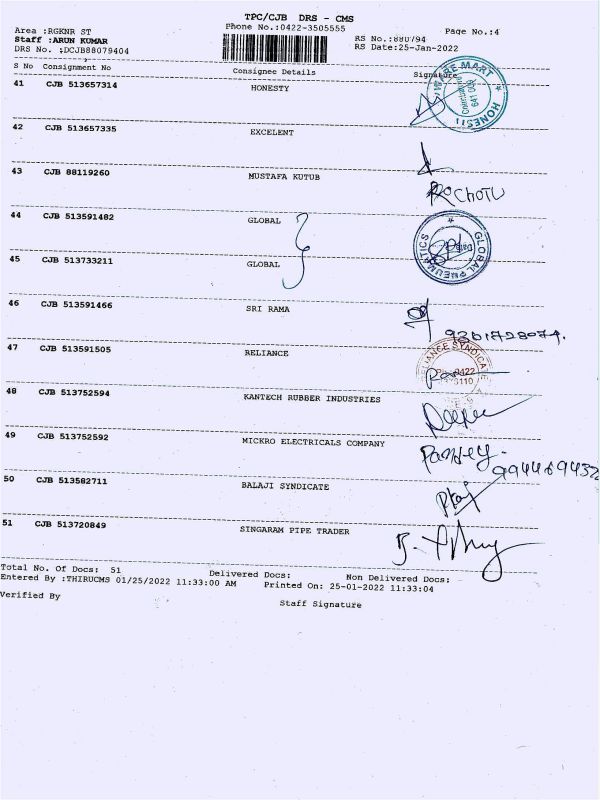 TPC/CJB DRS - CMS
Area :RGKNR ST
Phone No.:0422-3505555
Page No.:4
Staff :ARUN KUMAR
RS No.:880794
DRS No. :DCJB88079404
RS Date:25-Jan-2022
S No Consignment No Consignee Details Signature
41 CJB 513657314 HONESTY
WARE MART
HONEST
641 009
42 CJB 513657335 EXCELENT
43 CJB 88119260 MUSTAFA KUTUB
CHOTU
44 CJB 513591482 GLOBAL
GLOBAL PNEUMATICS
45 CJB 513733211 GLOBAL
46 CJB 513591466 SRI RAMA
47 CJB 513591505 RELIANCE
RELIANCE SYNDICATE
48 CJB 513752594 KANTECH RUBBER INDUSTRIES
49 CJB 513752592 MICKRO ELECTRICALS COMPANY
50 CJB 513582711 BALAJI SYNDICATE
51 CJB 513720849 SINGARAM PIPE TRADER
Total No. Of Docs: 51 Delivered Docs: Non Delivered Docs:
Entered By :THIRUCMS 01/25/2022 11:33:00 AM Printed On: 25-01-2022 11:33:04
Verified By
Staff Signature